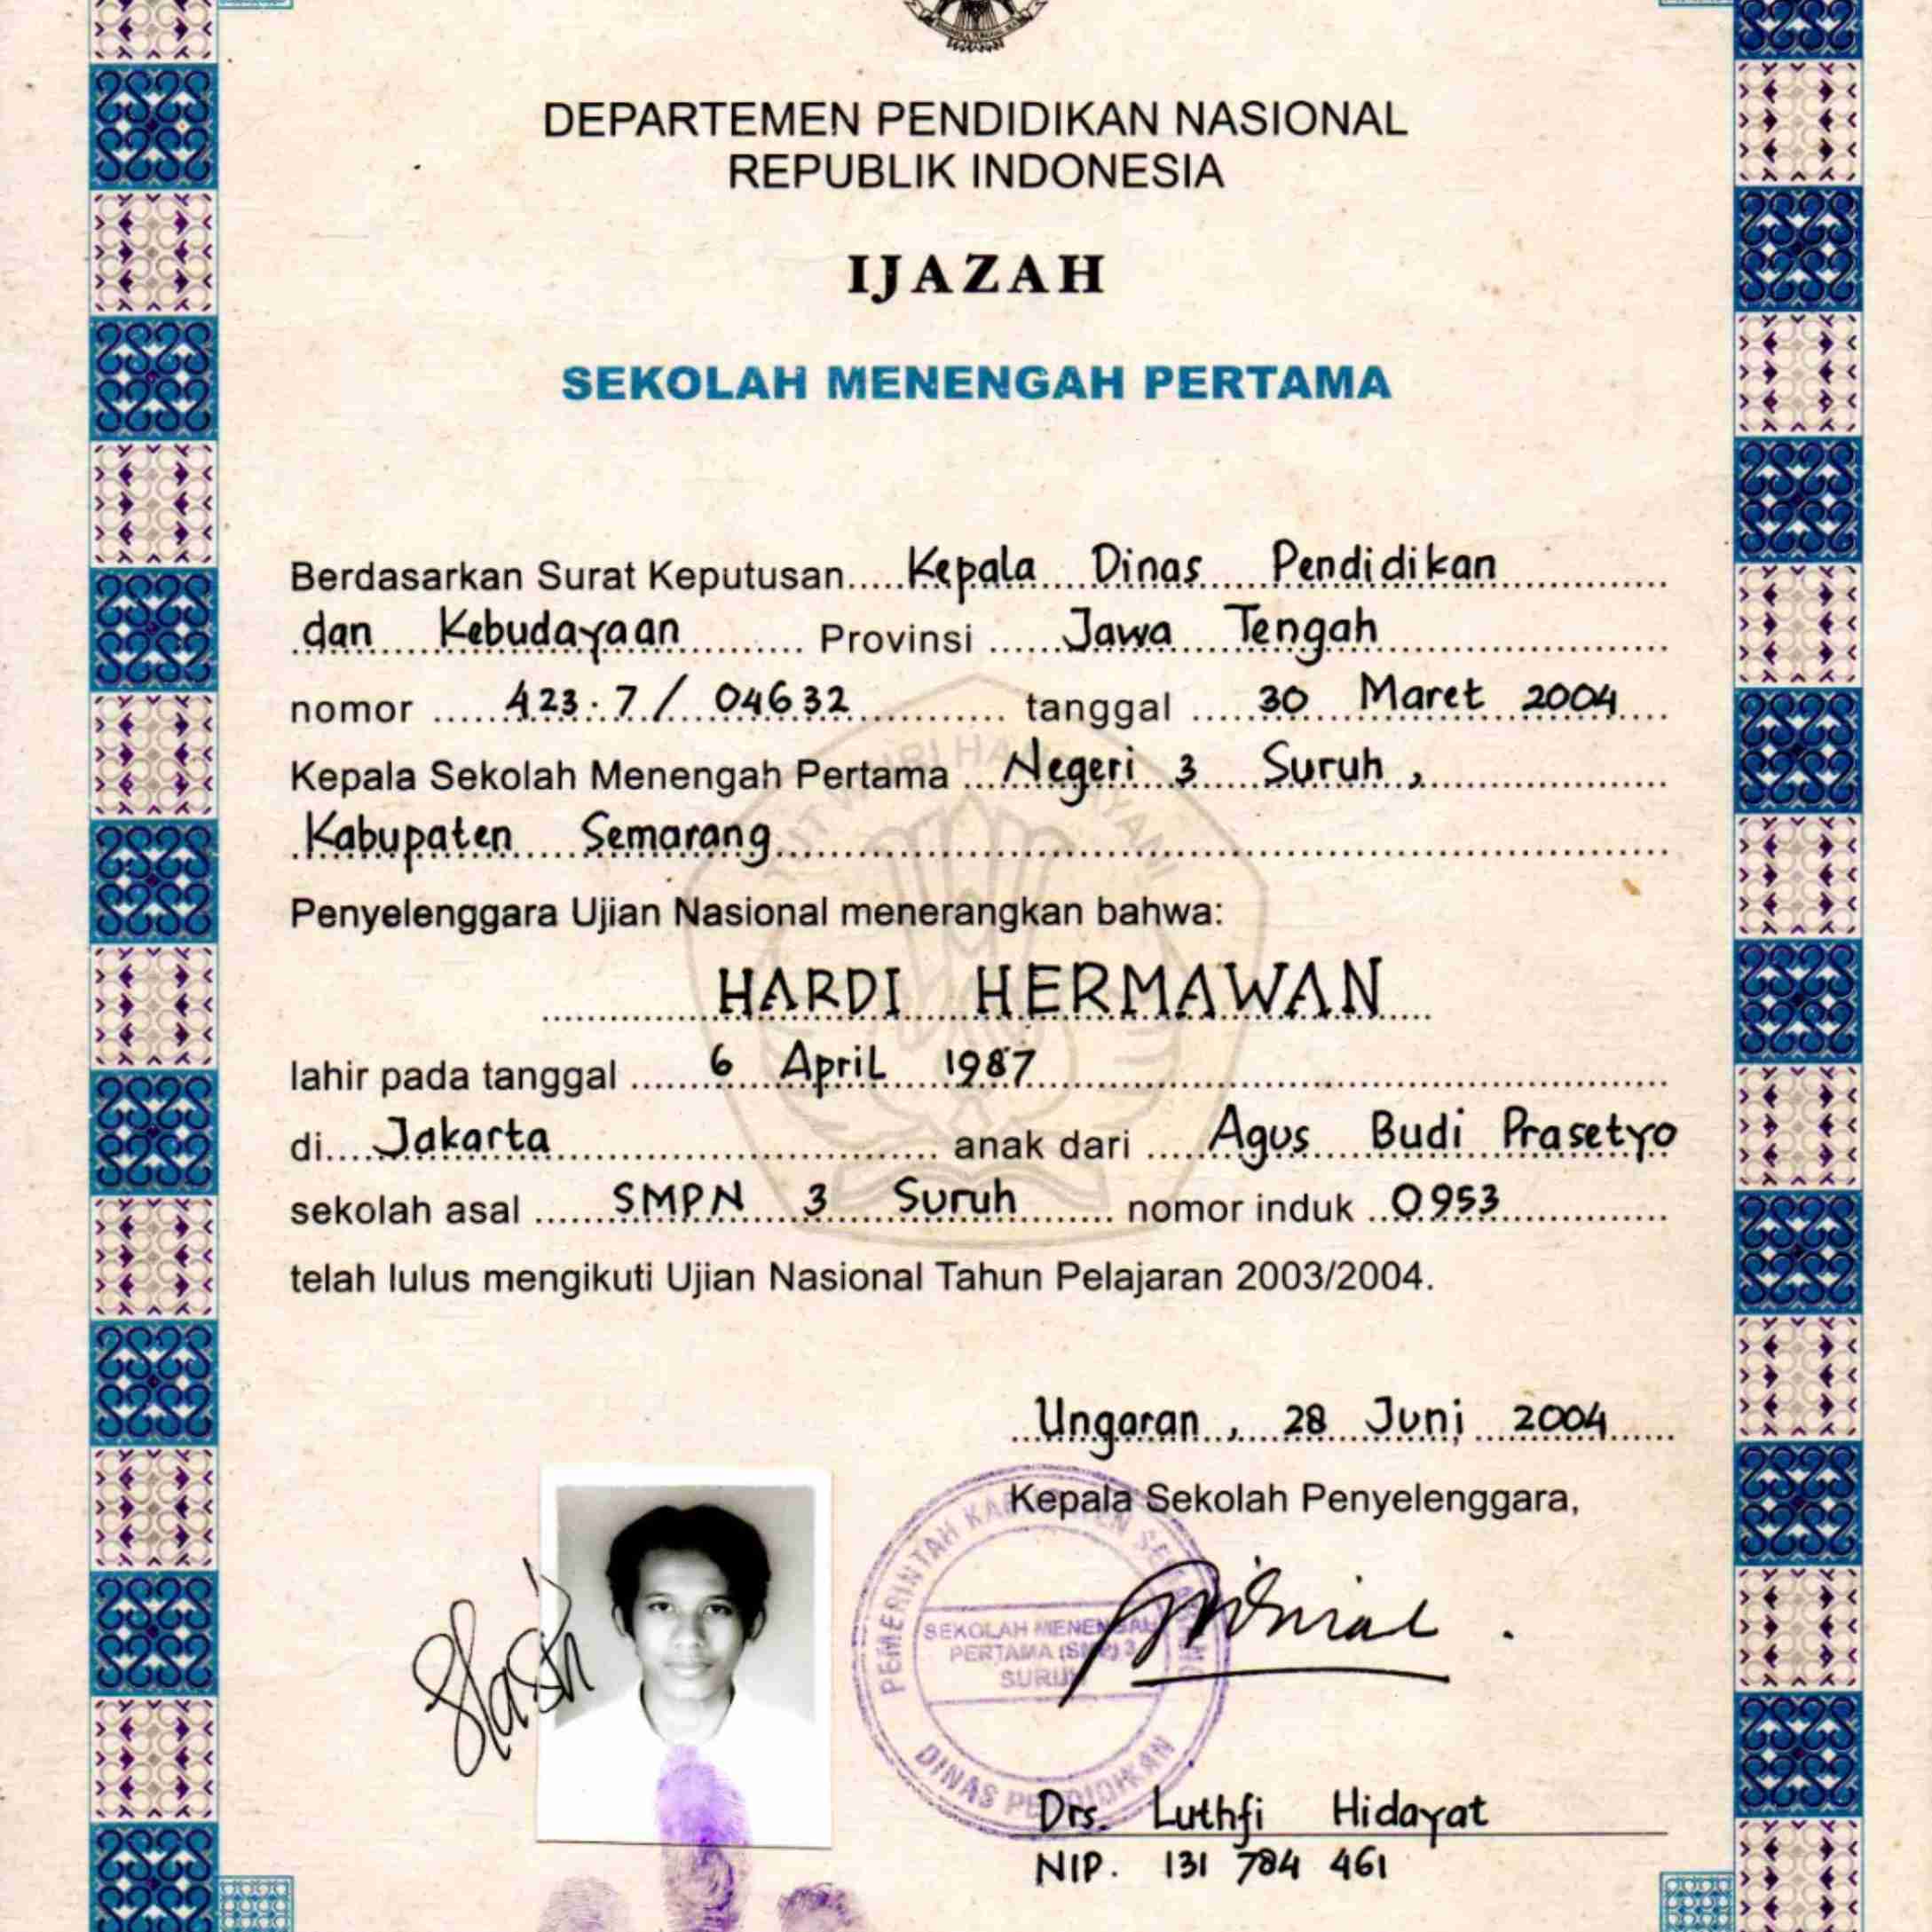 DEPARTEMEN PENDIDIKAN NASIONAL
REPUBLIK INDONESIA
IJAZAH
SEKOLAH MENENGAH PERTAMA
Berdasarkan Surat Keputusan Kepala Dinas Pendidikan
dan Kebudayaan Provinsi Jawa Tengah
nomor 423.7 / 04632 tanggal 30 Maret 2004
Kepala Sekolah Menengah Pertama Negeri 3 Suruh,
Kabupaten Semarang
Penyelenggara Ujian Nasional menerangkan bahwa:
HARDI HERMAWAN
lahir pada tanggal 6 April 1987
di Jakarta anak dari Agus Budi Prasetyo
sekolah asal SMPN 3 Suruh nomor induk 0953
telah lulus mengikuti Ujian Nasional Tahun Pelajaran 2003/2004.
Ungaran, 28 Juni 2004
Kepala Sekolah Penyelenggara,
PEMERINTAH KABUPATEN SEMARANG
SEKOLAH MENENGAH
PERTAMA (SMP) 3
SURUH
DINAS PENDIDIKAN
Drs. Luthfi Hidayat
NIP. 131 784 461